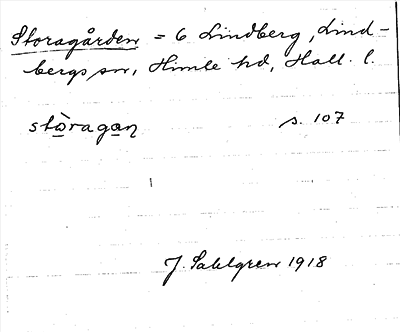 Storagården = 6 Lindberg, Lind-
bergs sn, Himle hd, Hall. l.
stòragan s. 107
J. Sahlgren 1918